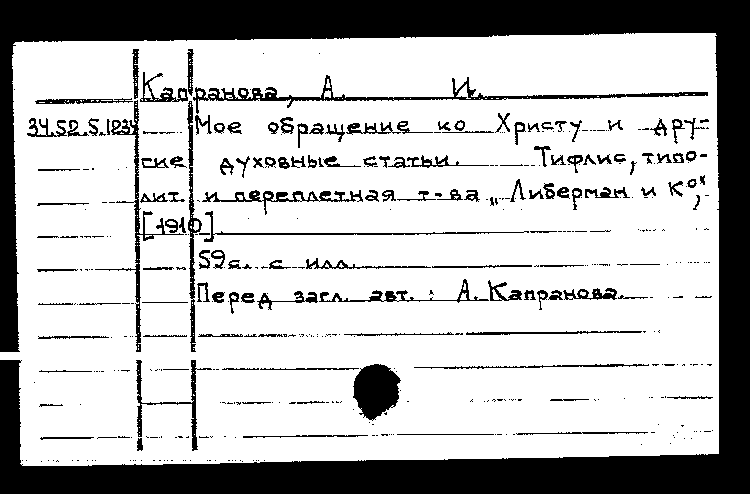 Капранова, А. И.
34.52.5.1234 Мое обращение ко Христу и дру-
гие духовные статьи. Тифлис, типо-
лит. и переплетная т-ва „Либерман и К°",
[1910].
59 с. с илл.
Перед загл. авт.: А. Капранова.